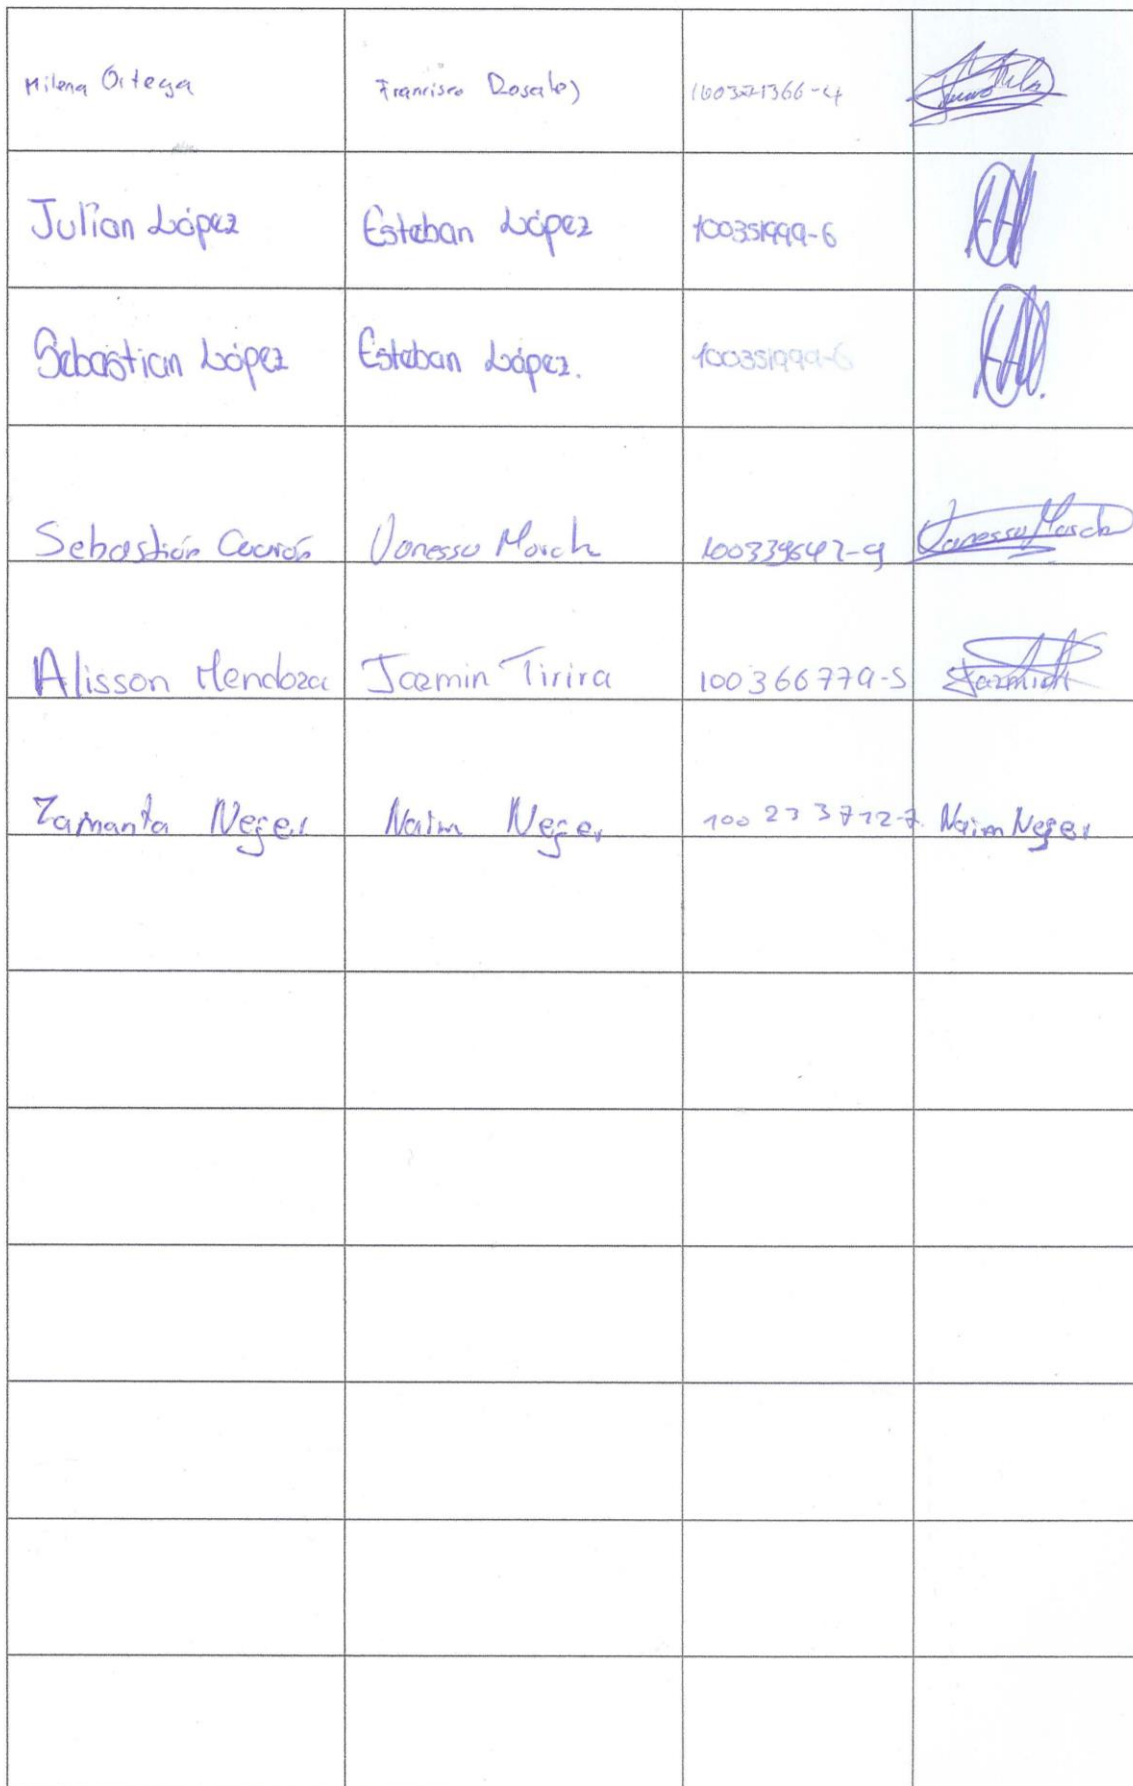 Milena Ortega Francisco Rosales
Julian López Esteban López 100351999-6
Sebastian López Esteban López. 100351999-6
Sebastián Vanessa 100339642-9 Vanessa
Alisson Mendoza Jazmin Tirira 100366779-5 Jazmin
Zamanta Neger Naim Neger 100233712-7 Naim Neger